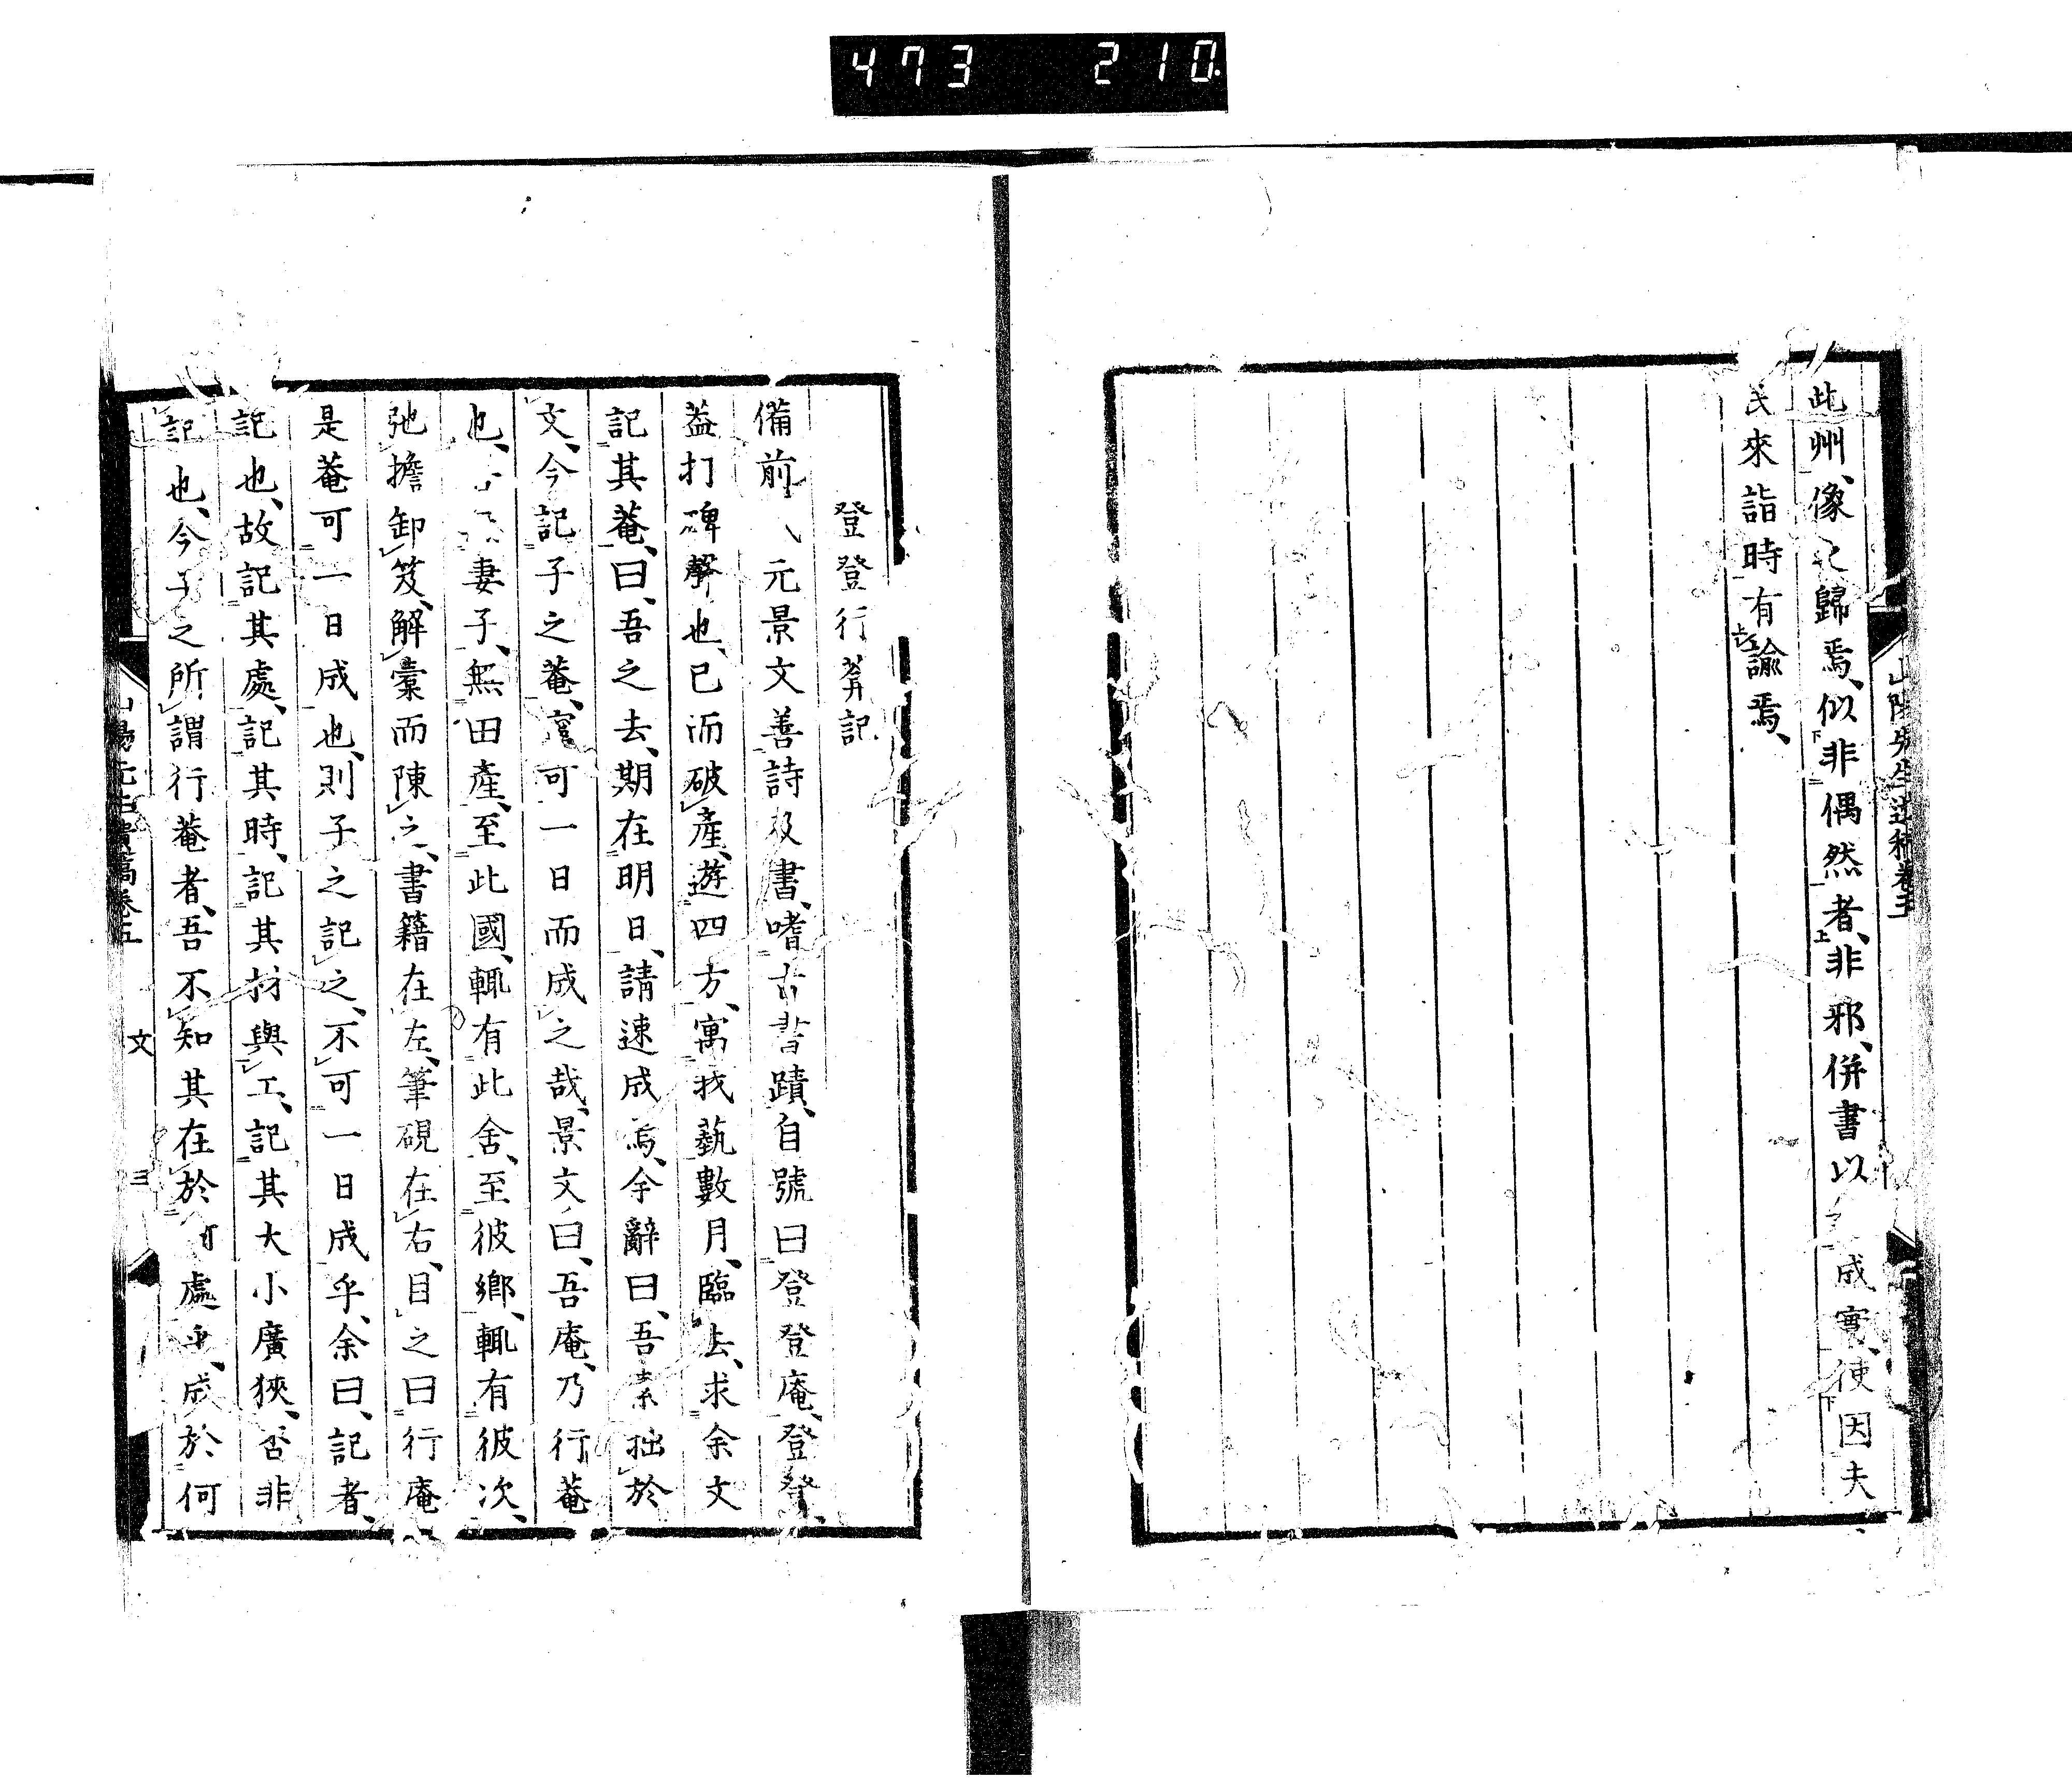 473 210
此州、像之歸焉、似非偶然者、非邪、併書以 成實、使因夫
民來詣時有諭焉、
登登行菴記
備前 元景文善詩及書、嗜古書蹟、自號曰登登庵、登登、
蓋打碑聲也、已而破產、遊四方、寓我藝數月、臨去、求余文
記其菴、曰、吾之去、期在明日、請速成焉、余辭曰、吾素拙於
文、今記子之菴、寧可一日而成之哉、景文曰、吾庵、乃行菴
也、 妻子、無田產、至此國、輒有此舍、至彼鄉、輒有彼次、
弛擔卸笈、解橐而陳之、書籍在左、筆硯在右、目之曰行庵
是菴可一日成也、則子之記之、不可一日成乎、余曰、記者、
記也、故記其處、記其時、記其材與工、記其大小廣狹、否非
記也、今子之所謂行菴者、吾不知其在於何處乎、成於何
文 三